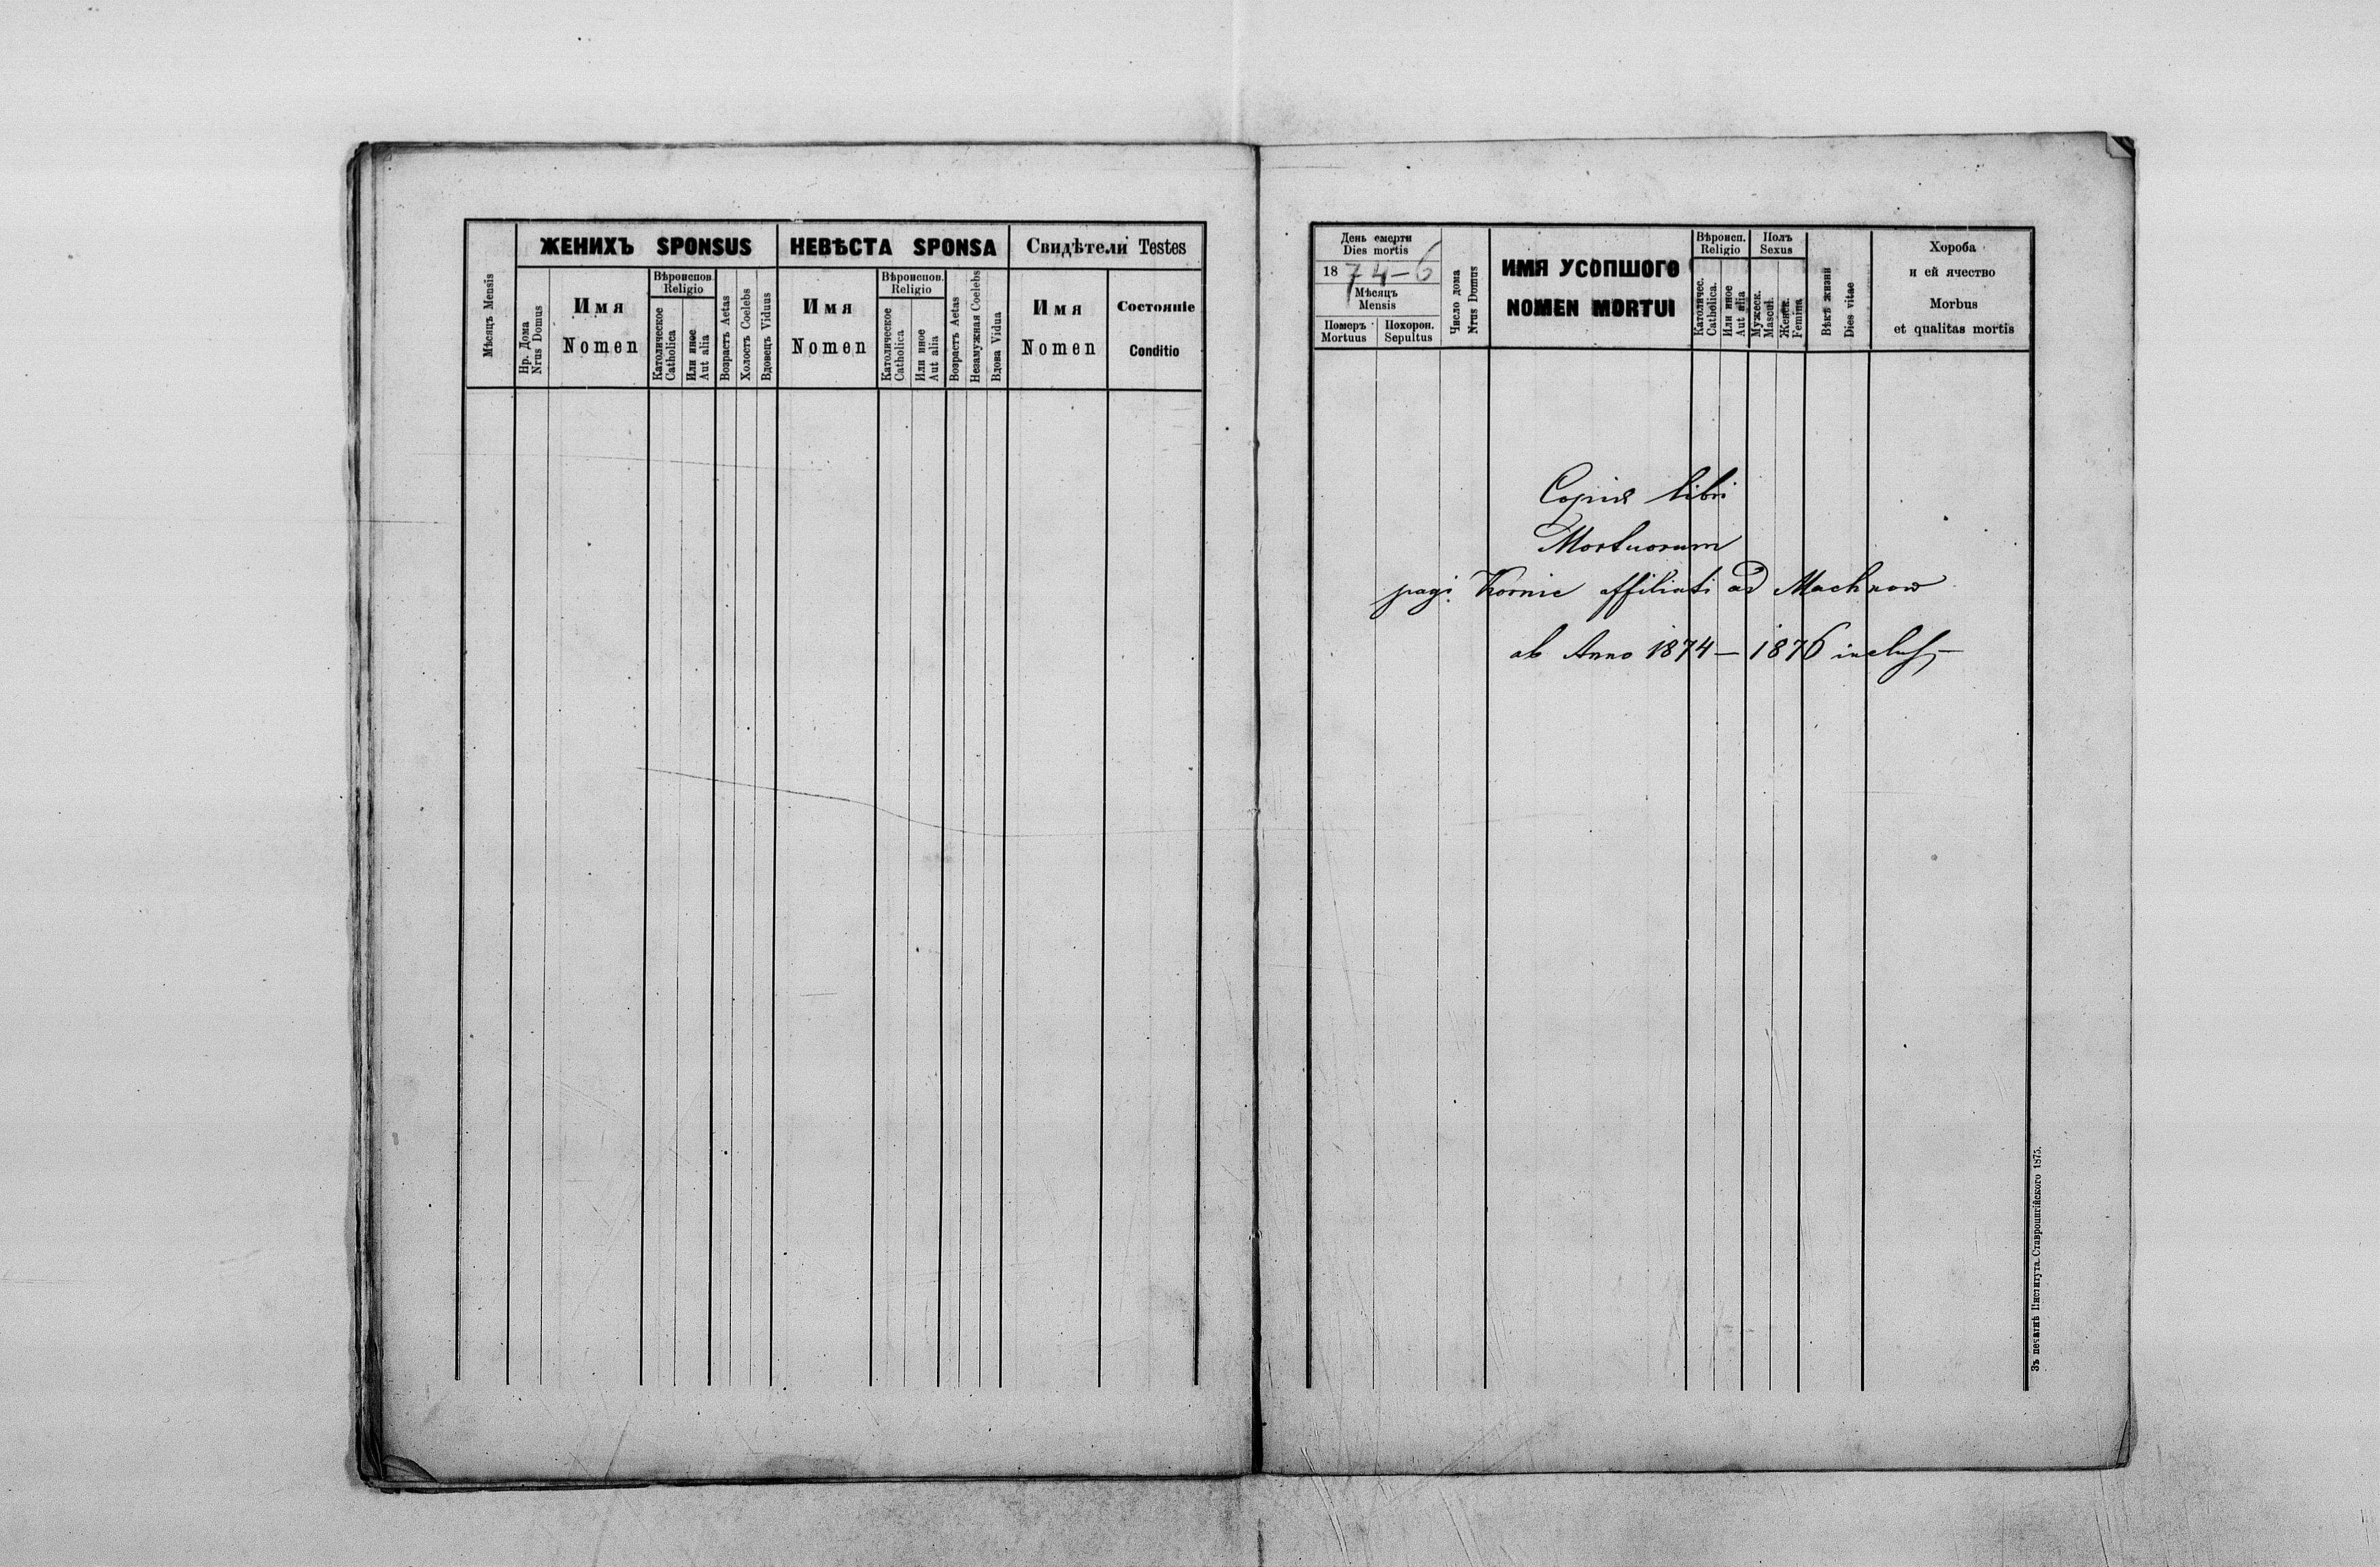 Мѣсяцъ Mensis
ЖЕНИХЪ SPONSUS
Нр. Дома
Nrus Domus
Имя
Nomen
Вѣроиспов.
Religio
Католическое
Catholica
Или иное
Aut alia
Возрастъ Aetas
Холостъ Coelebs
Вдовецъ Viduus
НЕВѢСТА SPONSA
Имя
Nomen
Вѣроиспов.
Religio
Католическое
Catholica
Или иное
Aut alia
Возрастъ Aetas
Незамужная Coelebs
Вдова Vidua
Свидѣтели Testes
Имя
Nomen
Состояніе
Conditio
День смерти
Dies mortis
1874-6
Мѣсяцъ
Mensis
Померъ
Mortuus
Похорон.
Sepultus
Число дома
Nrus Domus
ИМЯ УСОПШОГО
NOMEN MORTUI
Вѣроисп.
Religio
Католичес.
Catholica.
Или иное
Aut alia
Полъ
Sexus
Мужеск.
Mascul.
Женск.
Femina
Вѣкъ жизни
Dies vitae
Хороба
и ей ячество
Morbus
et qualitas mortis
Copia libri
Mortuorum
pagi Kornie affiliati ad Machnow
ab Anno 1874 — 1876 inclus —
Зъ печатнѣ Института Ставропигійского 1875.